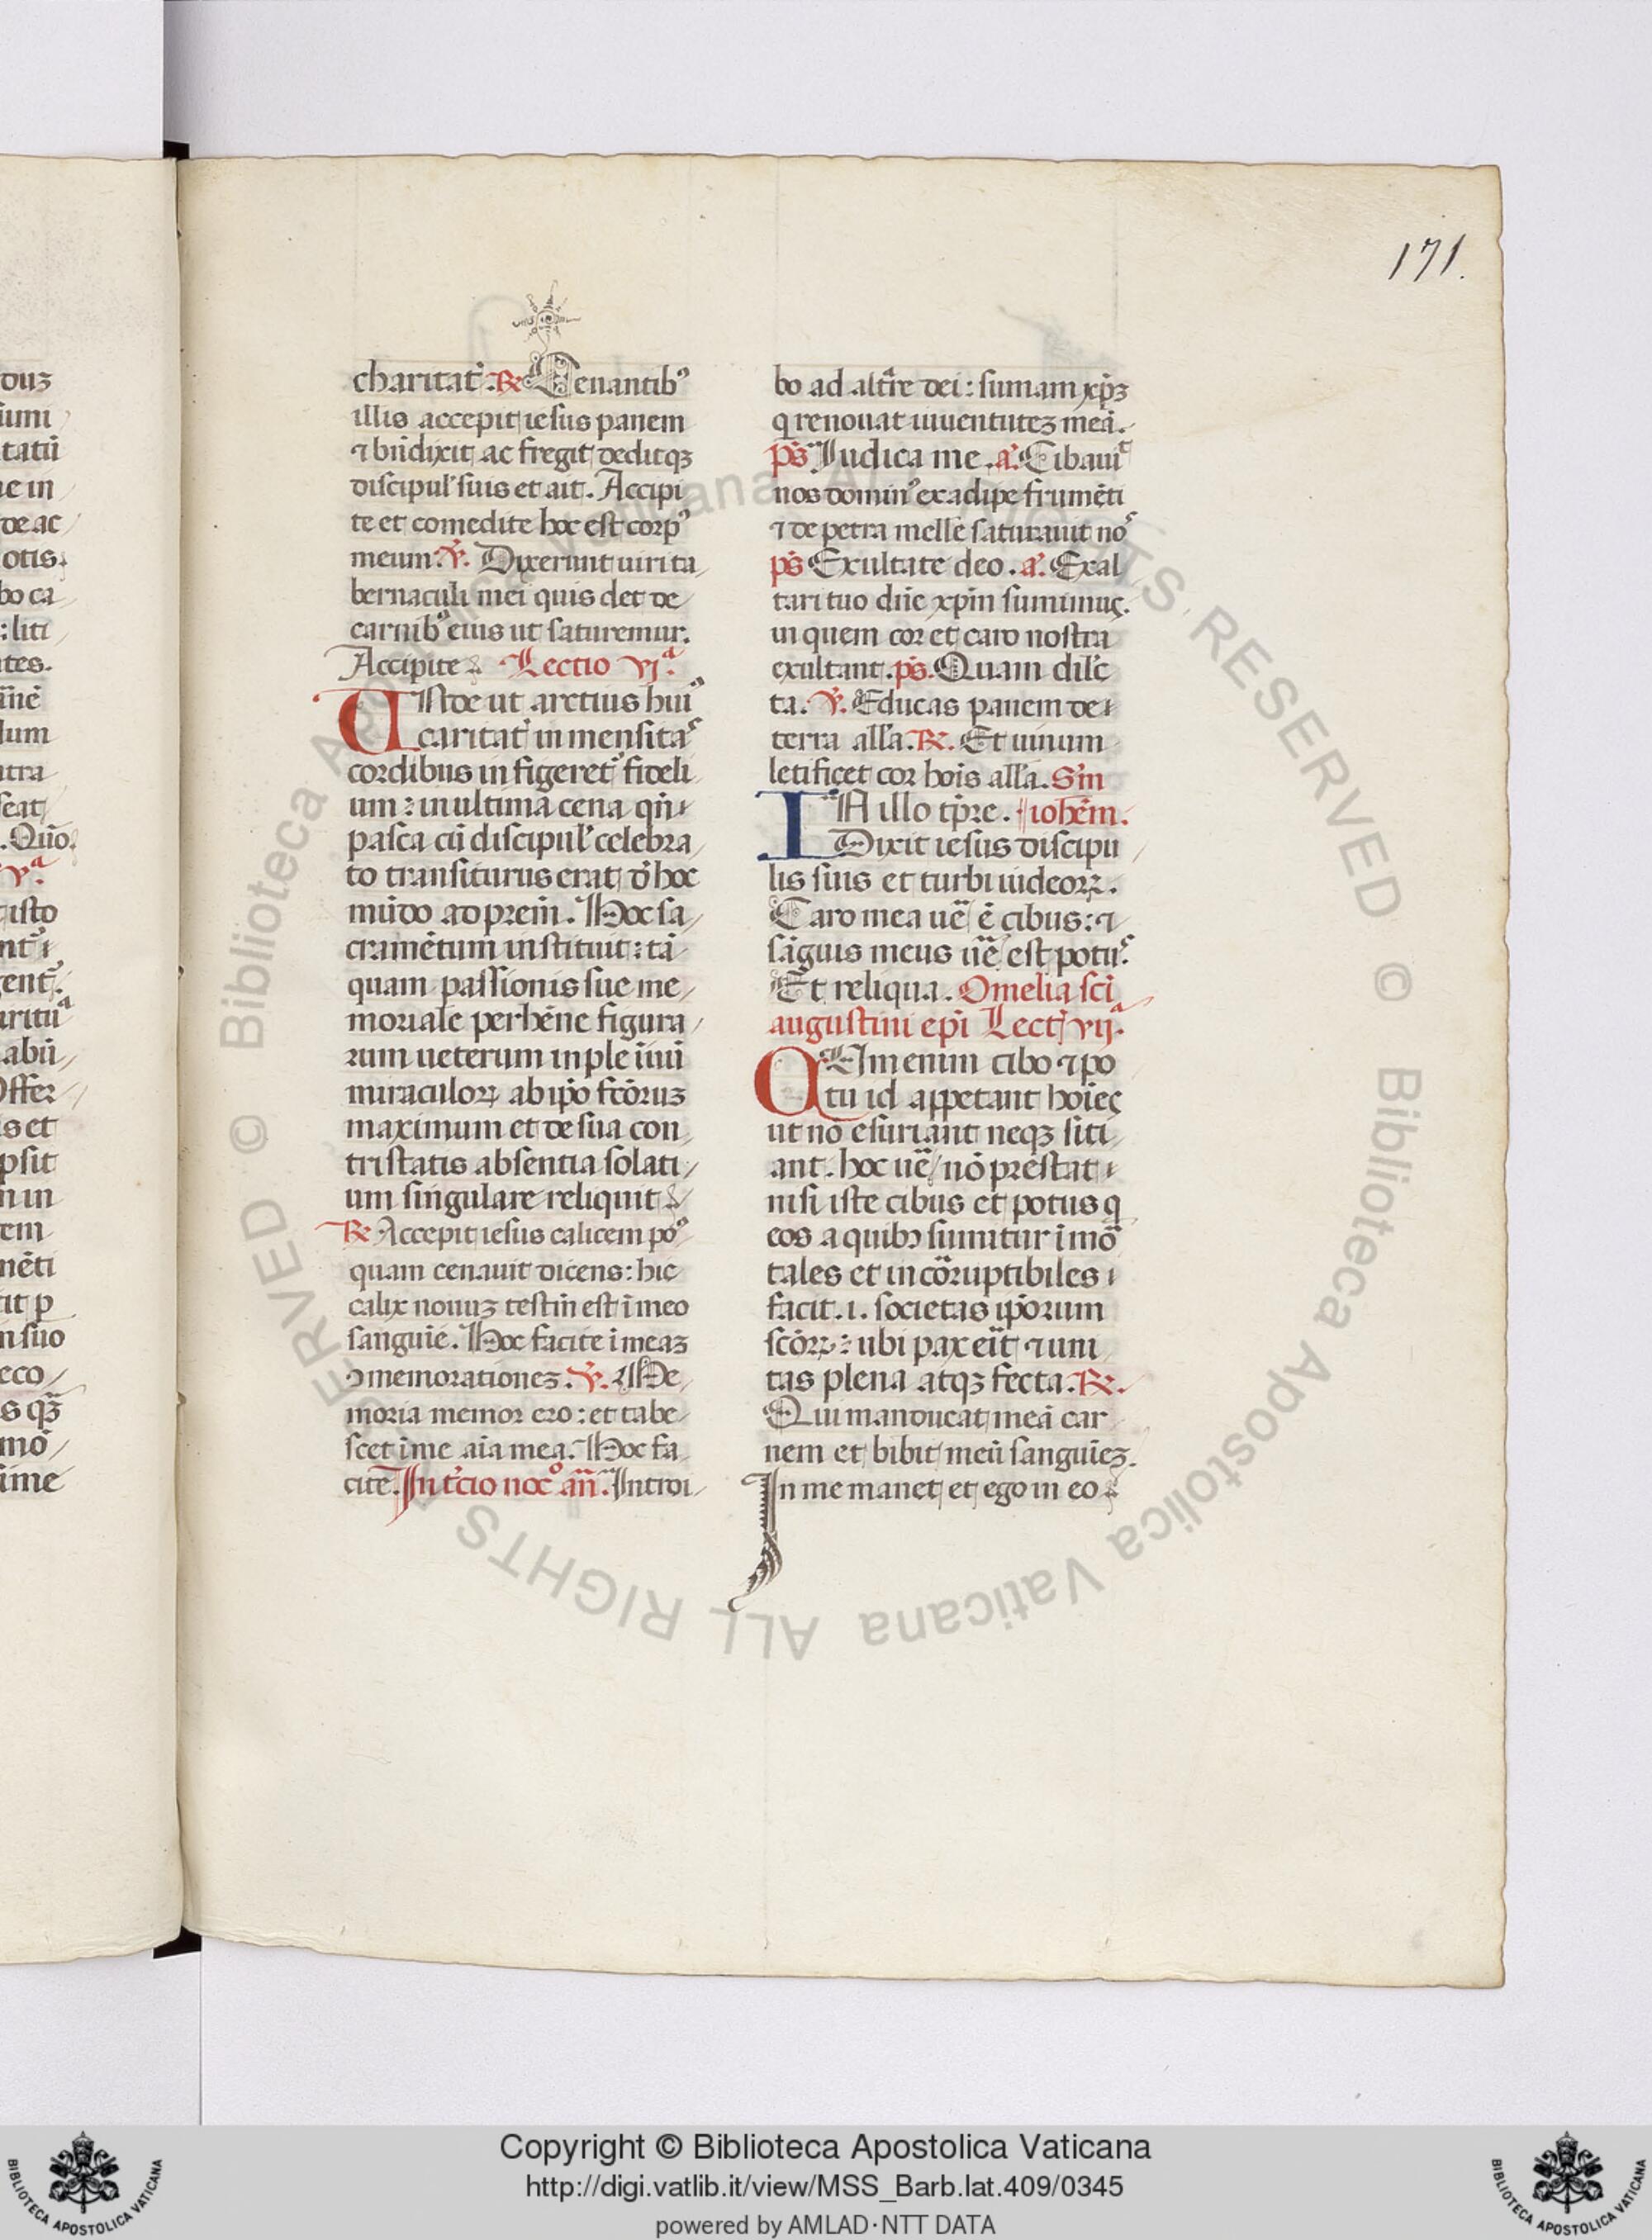 171.
charitat᷒. ℞ Cenantib⁹
illis accepit iesus panem
⁊ bn̄dixit ac fregit deditqꝫ
discipul᷒ suis et ait. Accipi
te et comedite hoc est corp⁹
meum. ℣. Dixerunt uiri ta
bernaculi mei quis det de
carnib⁹ eius ut saturemur.
Accipite Lectio vjᵃ.
Uɴde ut arctius hui⁹
caritat᷒ inmensitaˢ
cordibus in figeret᷒ fideli
um: in ultima cena qn̄
pasca cū discipul᷒ celebra
to transiturus erat d᷒ hoc
mūdo ad prem̄. Hoc sa
cramētum instituit: tā
quam passionis sue me
moriale perhēne figura
rum ueterum inpletiuū
miraculoꝝ ab ip̄o fc̄oruꝫ
maximum et de sua con
tristatis absentia solati
um singulare reliquit
℞ Accepit iesus calicem po⁹
quam cenauit dicens: hic
calix nouuꝫ testm̄ est ī meo
sanguīe. Hoc facite ī meaꝫ
ꝯmemorationeꝫ. ℣. Me
moria memor ero: et tabe
scet ī me aīa mea. Hoc fa
cite. In t᷒cio nocᵒ. an̄. Introi
bo ad altr̄e dei: sumam xp̄ꝫ
q renouat iuuentuteꝫ meā.
pˢ Iudica me. a᷒. Cibauiᵗ
nos domin⁹ ex adipe frumēti
⁊ de petra melle saturauit noˢ
pˢ Exultate deo. a᷒. Ex al
tari tuo dn̄e xp̄m sumimuς.
in quem cor et caro nostra
exultant. pˢ. Quam dil᷒c
ta. ℣. Educas panem de
terra all᷒a. ℞. Et uinum
letificet cor hoīs all᷒a. Sm̄
IN illo tp̄re. iohēm.
Dixit iesus discipu
lis suis et turbi iudeoꝝ.
Caro mea ue᷒ ē cibus: ⁊
sāguis meus ue᷒ est potuˢ.
Et reliqua. Omelia sc̄i
augustini ep̄i Lect᷒ vijᵃ.
QUm enim cibo ⁊ po
tu id appetant hoīeς
ut nō esuriant neqꝫ siti
ant. hoc ue᷒ nō prestat
nisi iste cibus et potus q
eos a quibꝰ sumitur īmo᷒
tales et inco᷒ruptibiles
facit. i. societas ip̄orum
sc̄oꝝ: ubi pax eit᷒ ⁊ uni
tas plena atqꝫ fecta. ℞.
Qui manducat meā car
nem et bibit meū sanguīeꝫ.
In me manet et ego in eo
ouꝫ
sumi
tatū
ne in
de ac
otis.
bo ca
: liti
ates.
lum
tra
seat
. Quo
vᵃ.
isto
abū
Offer
is et
psit
n in
em
mēti
tit p
n suo
eco
s qꝫ
mo
sime
Biblioteca Apostolica Vaticana ALL RIGHTS RESERVED © Biblioteca Apostolica Vaticana ALL RIGHTS RESERVED ©
Copyright © Biblioteca Apostolica Vaticana
http://digi.vatlib.it/view/MSS_Barb.lat.409/0345
powered by AMLAD·NTT DATA
BIBLIOTECA APOSTOLICA VATICANA
BIBLIOTECA APOSTOLICA VATICANA